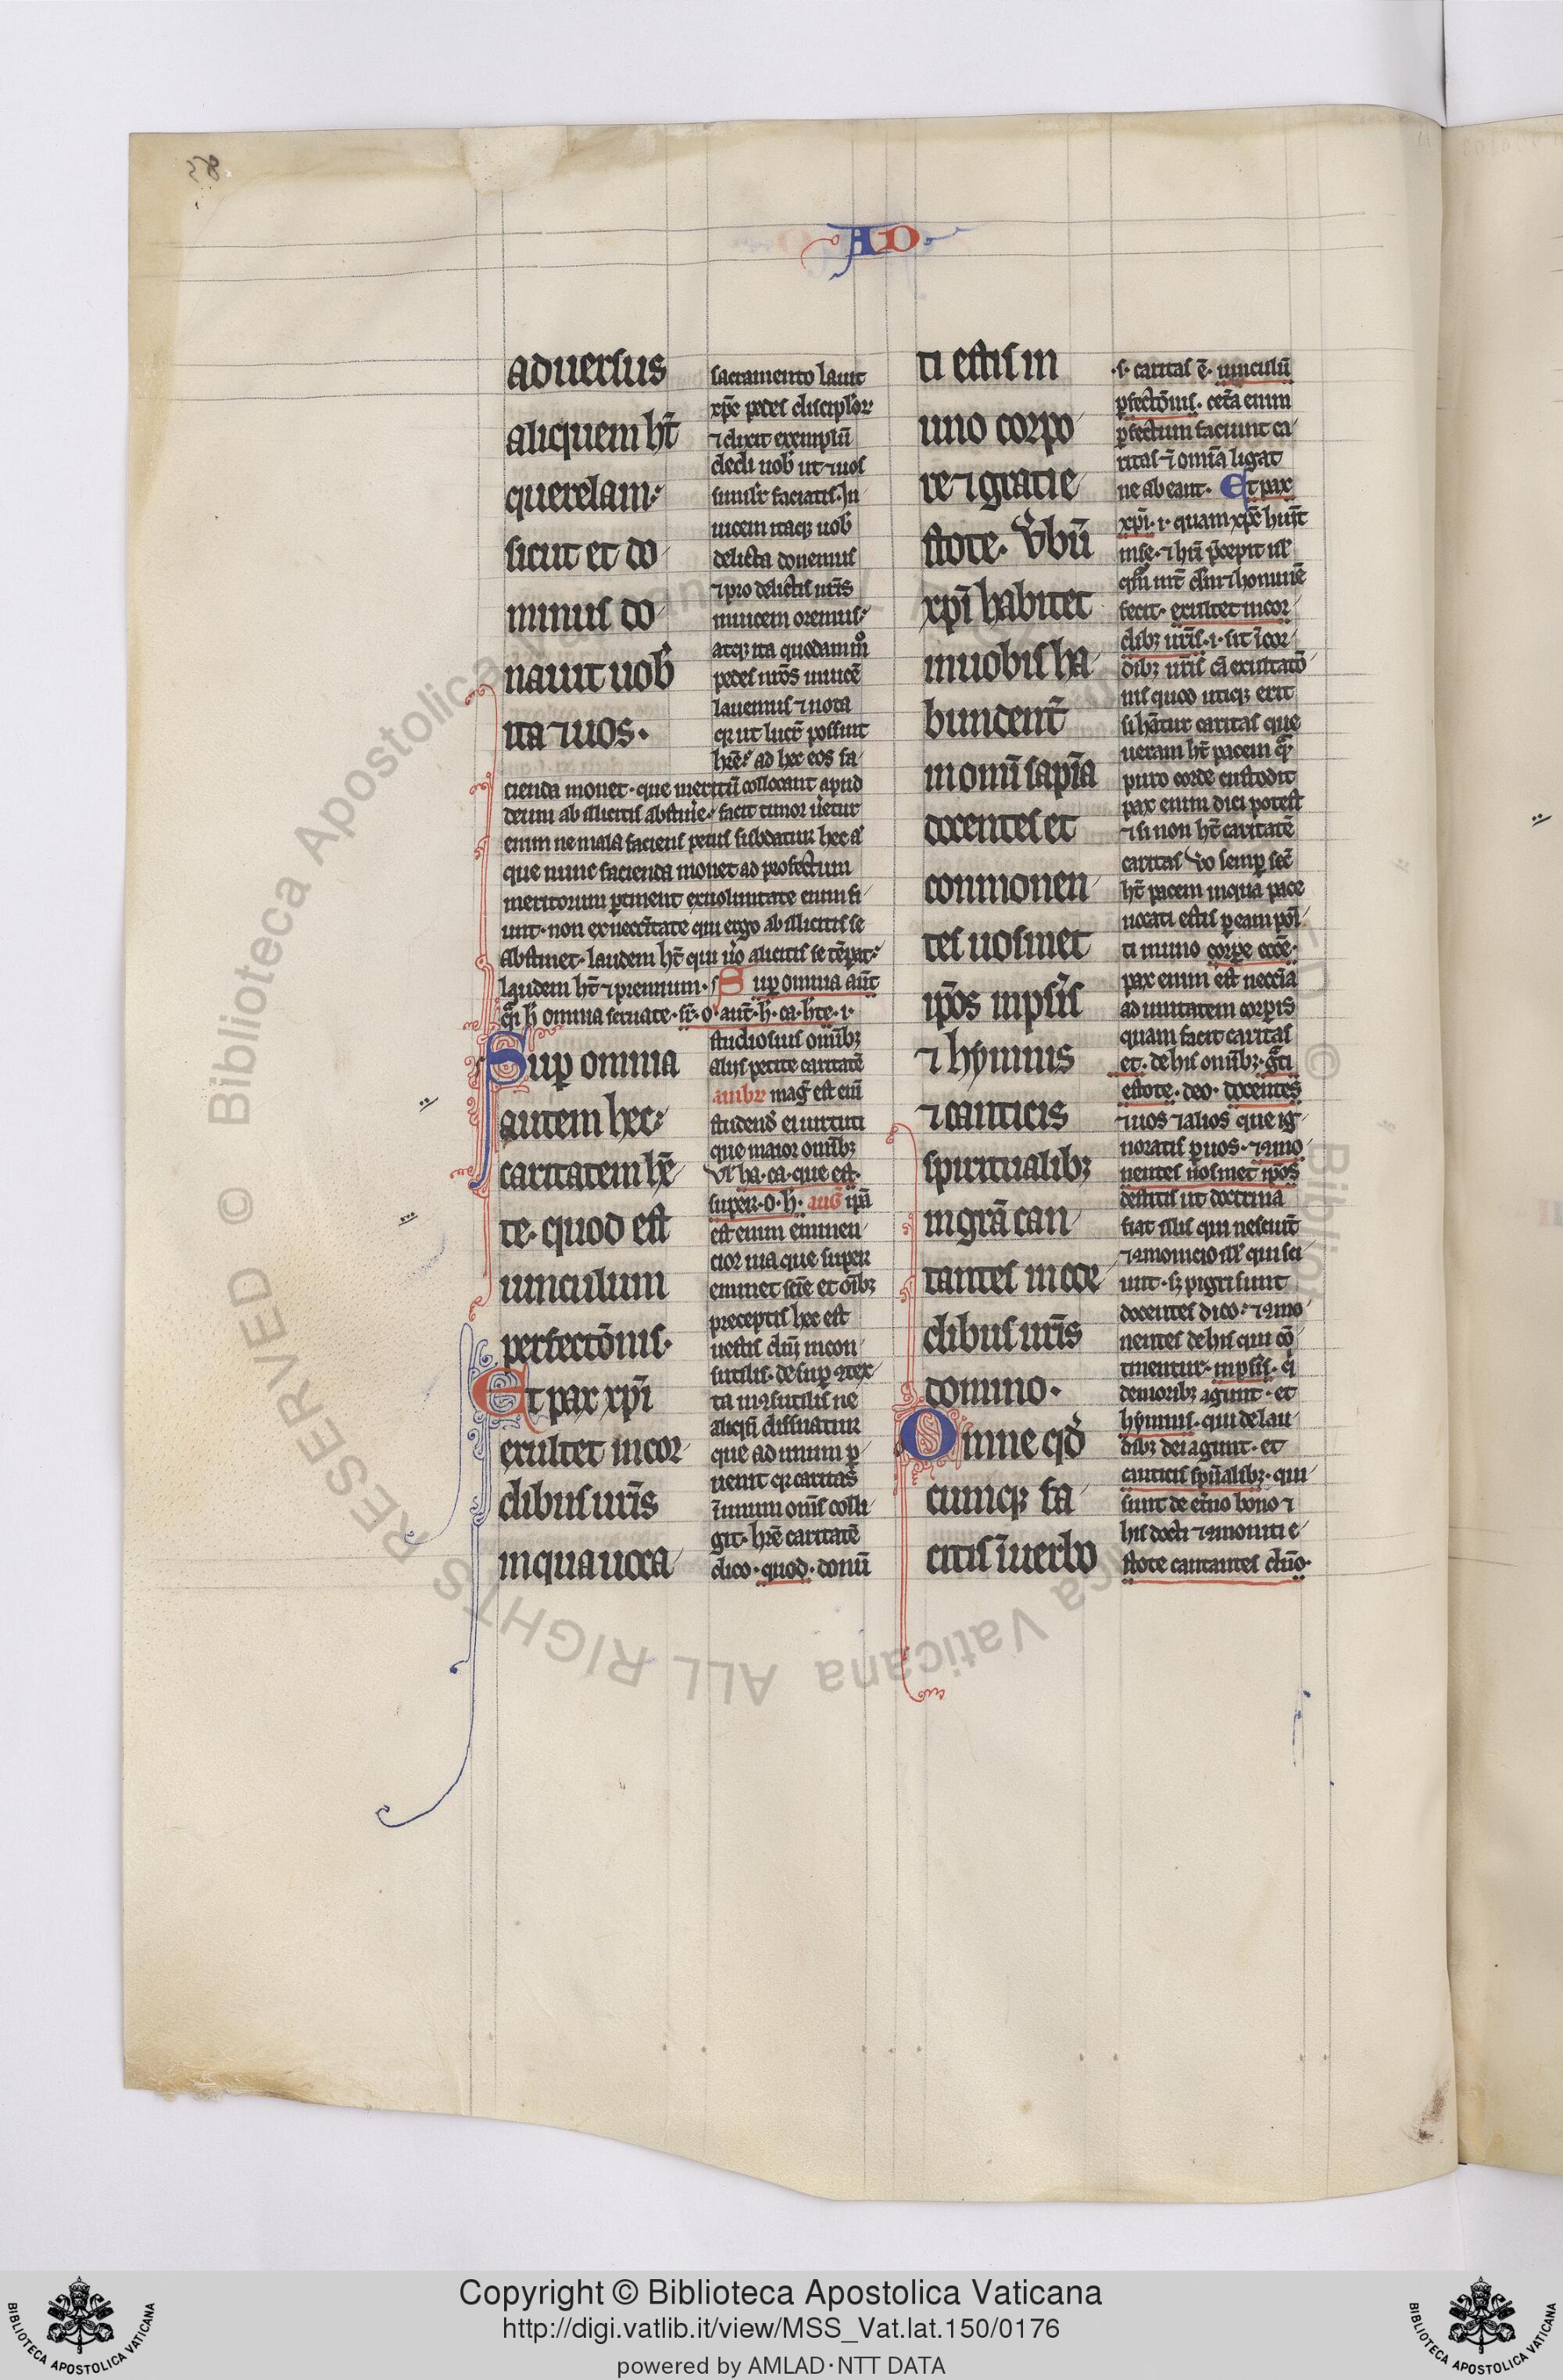 58
AD
aduersus
aliquem ht̄
querelam:
sicut et do
minus do
nauit uob̄
ita ⁊ uos.
sacramento lauit
xp̄c pedes discipl̄or
⁊ dixit exemplū
dedi uob̄ ut ⁊ uos
simil̄r faciatis. In
uicem itaq; uob̄
delicta donemus
⁊ pro delictis nr̄is
inuicem oremus:
atq; ita quodam m̊
pedes nr̄os inuicē
lauemus ⁊ nota
hr̄e: ad hec eos fa
cienda monet. que meritū collocant apud
deum ab illicitis abstin̄e: facit timor
enim ne mala faciens penis subdatur hec a
que nunc facienda monet ad profectum
meritorum ꝑtinent ex uoluntate enim fi
unt. non ex neccītate qui ergo ab illicitis se
abstinet. laudem ht̄ qui ṽo a licitis se tēpat:
laudem ht̄ ⁊ premium. Suꝑ omnia aūt
omnia seruate. sr̄. o. aūt. h. ca. hte. i.
Suꝑ omnia
autem hec:
caritatem hē
te. quod est
uinculum
perfectōnis.
Et pax xp̄i
exultet in cor
dibus ur̄is
in qua uoca
studiosius omīb;
aliis petite caritatē
ambr mag̃ est eni̅
studend̄ ei uirtuti
que maior omīb;
Vl̄ ha. ca. que est.
super. o. h. aug̃ ip̄a
est enim eminen
cior uia que super
eminet scīe et oīb;
preceptis hec est
uestis dn̄j incon
sutilis. desuꝑ ꝯtex
ta inꝯsutilis ne
aliqn̄ dissuatur
que ad unum ꝑ
uenit qr caritas
ī unum om̄s colli
git. hr̄e caritatē
dico. quod. donū
ti estis in
uno corpo
re ⁊ gratie
stote. Ṽbū
xp̄i habitet
in uobis ha
bundent̄
in omī sapīa
docentes et
conmonen
tes uosmet
ip̄os in psl̄is
⁊ hymnis
⁊ canticis
spiritualib;
in gr̄a can
tantes in cor
dibus ur̄is
domino.
Omne qd̄
cumq; fa
citis ī uerbo
.s. caritas ē. uinculū
ꝑfectōnis. cet̄a enim
ꝑfectum faciunt ca
ritas ⁊ omīa ligat
ne abeant. Et pax
xp̄i. i. quam xp̄c huīt
in se. ⁊ hn̄i p̄cepit
fecit. exultet in cor
dib; ur̄is. i. sit ī cor
dib; ur̄is cū exultatō
nis quod utiq; erit
si hēatur caritas que
ueram ht̄ pacem
puro corde custodit
pax enim dici potest
⁊ si non ht̄ caritatē
caritas ṽo semꝑ sec̄
ht̄ pacem in qua pace
uocati estis ꝑ eam pos̄i
ti in uno corꝑe ecc̄e.
pax enim est neccīa
ad unitatem corꝑis
quam facit caritas
et. de his omīb; gr̄ti
estote. deo. docentes
⁊ uos ⁊ alios que ig
noratis ꝑ uos. ⁊ ꝯmo
nentes uosmet ip̄os
desitis ut doctrina
fiat illis qui nesciūt
⁊ ꝯmonicio ill̄ qui sci
unt. s; pigri sunt
docentes dico: ⁊ ꝯmo
nentes de his qui cō
tinentur. in psl̄is. q̄i
de morib; agunt. et
hymnis. qui de lau
dib; dei agunt. et
canticis spūalib;. qui
sunt de et̄no bono ⁊
his docti ⁊ ꝯmoniti e
stote cantantes dn̄o.
Copyright © Biblioteca Apostolica Vaticana
http://digi.vatlib.it/view/MSS_Vat.lat.150/0176
powered by AMLAD·NTT DATA
BIBLIOTECA APOSTOLICA VATICANA
BIBLIOTECA APOSTOLICA VATICANA